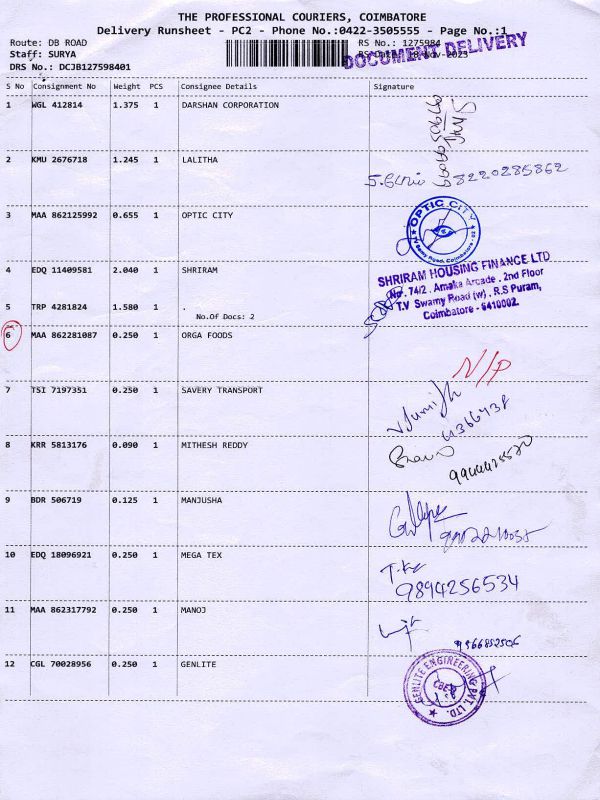 THE PROFESSIONAL COURIERS, COIMBATORE
Delivery Runsheet - PC2 - Phone No.:0422-3505555 - Page No.:1
Route: DB ROAD
RS No.: 1275984
DOCUMENT DELIVERY
Staff: SURYA
RS Date: 18-Nov-2023
DRS No.: DCJB127598401
S No Consignment No Weight PCS Consignee Details Signature
1 WGL 412814 1.375 1 DARSHAN CORPORATION
2 KMU 2676718 1.245 1 LALITHA
8220285862
3 MAA 862125992 0.655 1 OPTIC CITY
OPTIC CITY
T.V Swamy Road, Coimbatore - 02
4 EDQ 11409581 2.040 1 SHRIRAM
SHRIRAM HOUSING FINANCE LTD
No. 74/2. Amaka Arcade. 2nd Floor
T.V Swamy Road (w). R.S Puram,
Coimbatore - 6410002.
5 TRP 4281824 1.580 1 .
No.Of Docs: 2
6 MAA 862281087 0.250 1 ORGA FOODS
N/P
7 TSI 7197351 0.250 1 SAVERY TRANSPORT
8 KRR 5813176 0.090 1 MITHESH REDDY
9944425520
9 BDR 506719 0.125 1 MANJUSHA
10 EDQ 18096921 0.250 1 MEGA TEX
9894256534
11 MAA 862317792 0.250 1 MANOJ
9566852506
12 CGL 70028956 0.250 1 GENLITE
GENLITE ENGINEERING PVT. LTD.
CBE